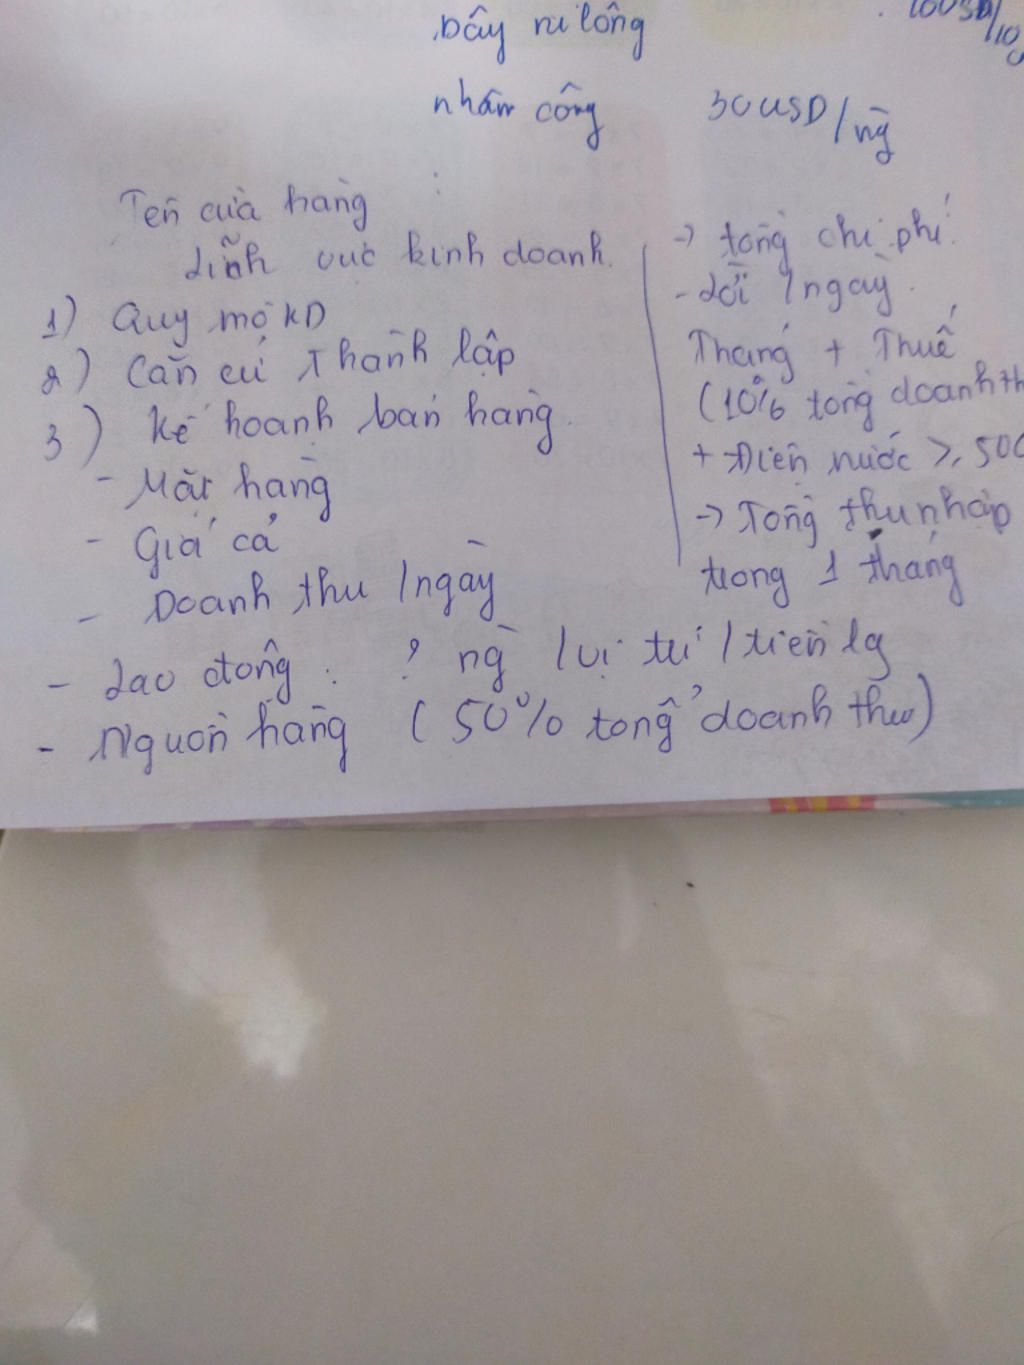 bẫy
nhân công 30USD/ng
Tên cửa hàng :
Lĩnh vực kinh doanh.
1) Quy mô KD
2) Căn cứ thành lập
3) Kế hoạnh bán hàng.
- Mặt hàng
- Giá cả
- Doanh thu /ngày
- Lao động : ? ng /vị trí /tiền lg
- Nguồn hàng (50% tổng doanh thu)
-> tổng chi phí.
- Lời /ngày.
Tháng + Thuế
(10% tổng doanh th
+ Điện nước ≥ 500
-> Tổng thu nhập
trong 1 tháng